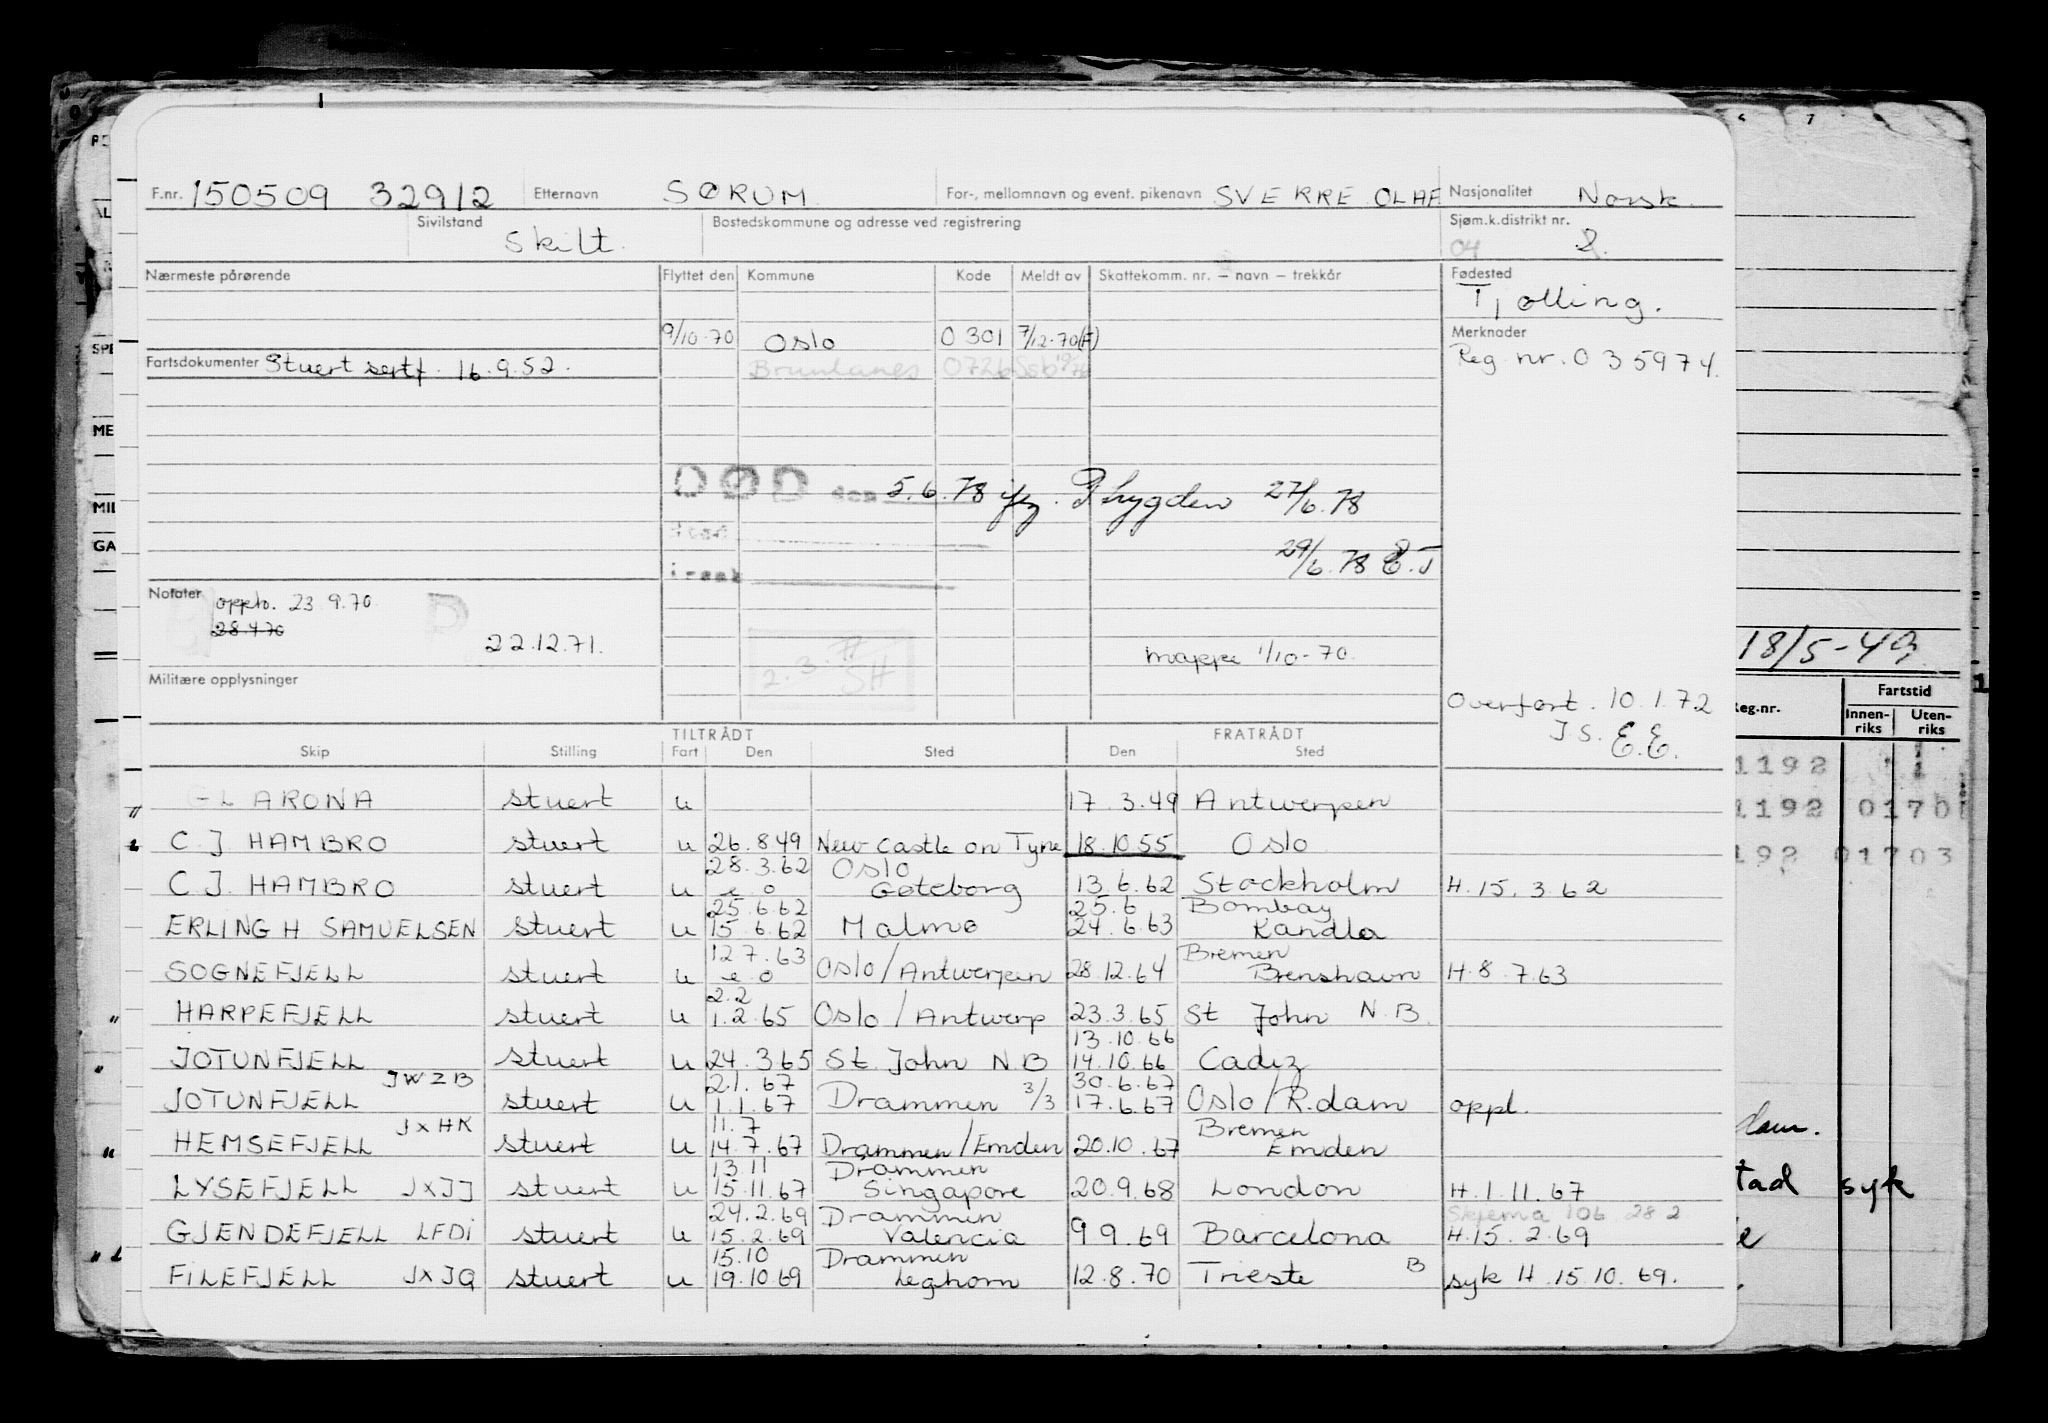 F.nr. 150509 32912 Etternavn SØRUM For-, mellomnavn og event. pikenavn SVERRE OLAF Nasjonalitet Norsk.
Sivilstand Skilt. Bostedskommune og adresse ved registrering Sjøm.k.distrikt nr. 04 2.
Nærmeste pårørende Flyttet den Kommune Kode Meldt av Skattekomm. nr. – navn – trekkår Fødested
Tjølling.
9/10-70 Oslo 0301 7/12-70(F) Merknader
Fartsdokumenter Stuert sertf. 16.9.52. Brunlanes 0726 Reg nr. 035974.
DØD den 5.6.78 ifg. Trygden 27/6.78
Sted
årsak 29/6.78 E.J
Notater oppb. 23.9.70 D
28.4.70
22.12.71. 2.3.77 SH mappe 1/10-70.
18/5-49
Militære opplysninger
Overført. 10.1.72
J.S. E.E.
TILTRÅDT FRATRÅDT
Skip Stilling Fart Den Sted Den Sted
Reg.nr. Fartstid
Innen-riks Uten-riks
GLARONA stuert u 17.3.49 Antwerpen
C.J. HAMBRO stuert u 26.8.49 New-Castle on Tyne 18.10.55 Oslo
28.3.62 Oslo
C.J. HAMBRO stuert u e.o Gøteborg 13.6.62 Stockholm H.15.3.62
25.6.62 25.6 Bombay
ERLING H SAMUELSEN stuert u 15.6.62 Malmø 24.6.63 Kandla
12.7.63 Bremen
SOGNEFJELL stuert u e.o Oslo/Antwerpen 28.12.64 Brenshavn H.8.7.63
2.2
HARPEFJELL stuert u 1.2.65 Oslo/Antwerp 23.3.65 St John N.B.
13.10.66
JOTUNFJELL stuert u 24.3.65 St. John N B 14.10.66 Cadiz
JWZB 2.1.67 30.6.67
JOTUNFJELL stuert u 1.1.67 Drammen 3/3 17.6.67 Oslo/R.dam oppl.
JXHK 11.7 Bremen
HEMSEFJELL stuert u 14.7.67 Drammen/Emden 20.10.67 Emden
13.11 Drammen
LYSEFJELL JXJJ stuert u 15.11.67 Singapore 20.9.68 London H.1.11.67
24.2.69 Drammen Skjema 106 28.2
GJENDEFJELL LFDI stuert u 15.2.69 Valencia 9.9.69 Barcelona H.15.2.69
15.10 Drammen
FILEFJELL JXJG stuert u 19.10.69 Leghorn 12.8.70 Trieste B syk H.15.10.69.
1192
1192 0170
192 01703
dam.
tad syk